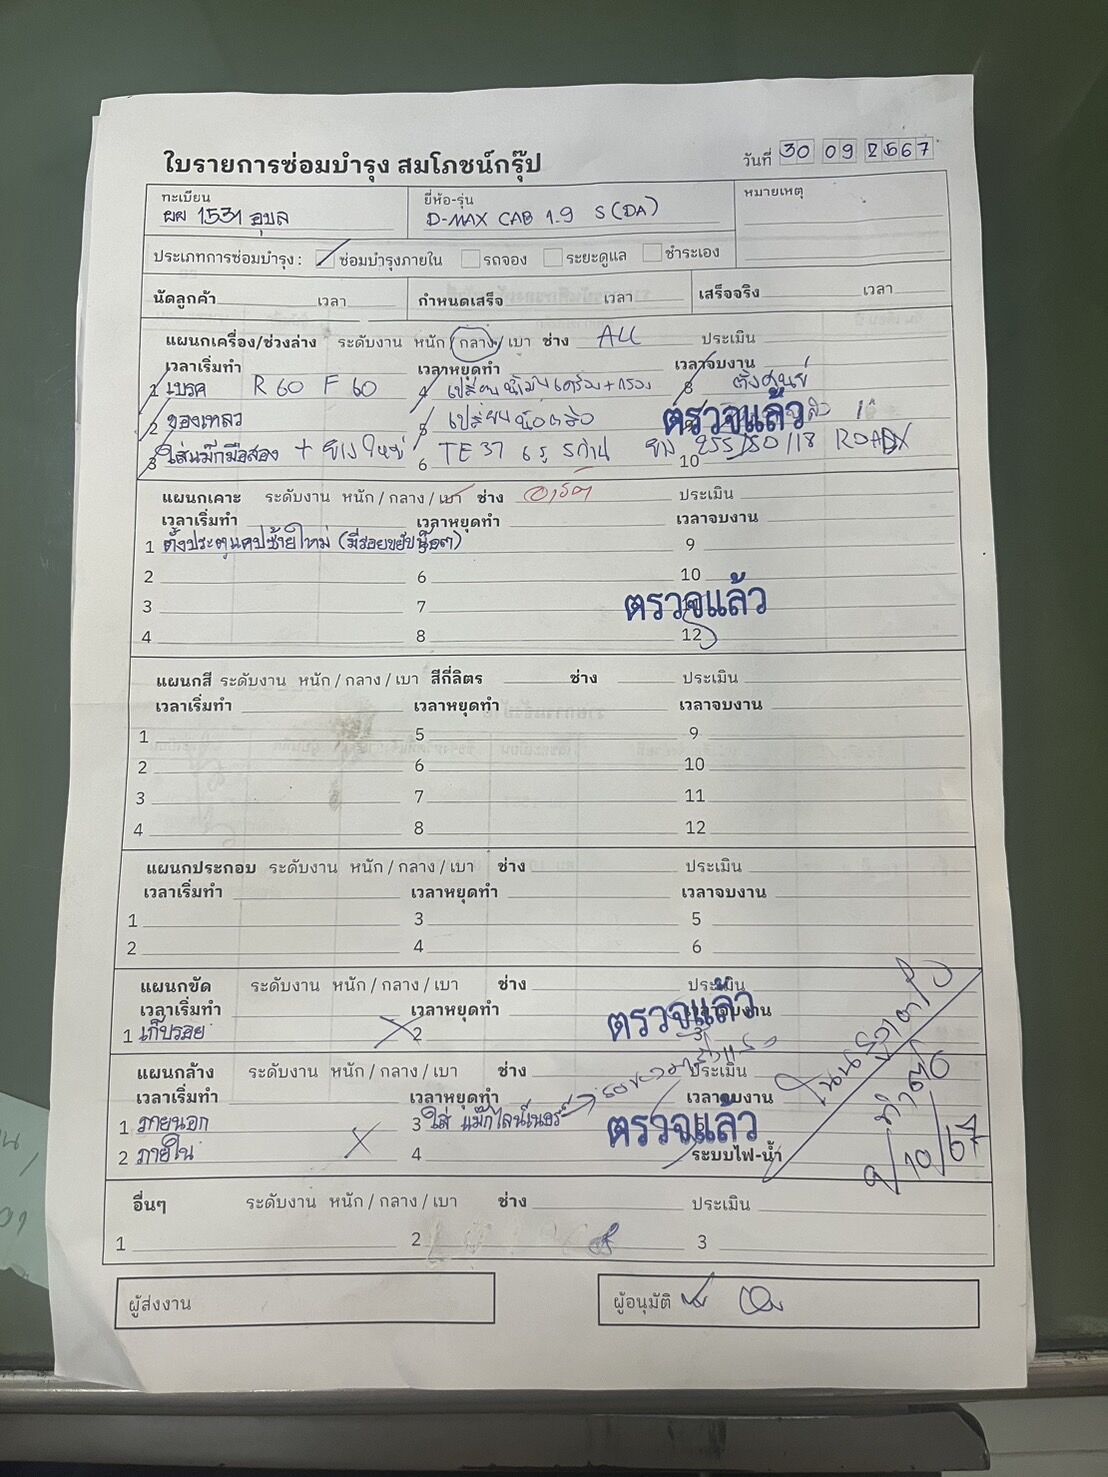 ใบรายการซ่อมบำรุง สมโภชน์กรุ๊ป วันที่ 30 09 2567
ทะเบียน ยี่ห้อ-รุ่น หมายเหตุ
ผผ 1531 อุบล D-MAX CAB 1.9 S (DA)
ประเภทการซ่อมบำรุง : ซ่อมบำรุงภายใน รถจอง ระยะดูแล ชำระเอง
นัดลูกค้า เวลา กำหนดเสร็จ เวลา เสร็จจริง เวลา
แผนกเครื่อง/ช่วงล่าง ระดับงาน หนัก / กลาง / เบา ช่าง AU ประเมิน
เวลาเริ่มทำ เวลาหยุดทำ เวลาจบงาน
1 เบรค R 60 F 60 4 เปลี่ยนน้ำมันเครื่อง+กรอง 8 ตั้งศูนย์
2 ของเหลว 5 เปลี่ยนน็อตล้อ ตรวจแล้ว
3 ใส่แม็กมือสอง + ยางใหม่ 6 TE 37 6 รู 5 ก้าน ยาง 255/50/18 ROADX 10
แผนกเคาะ ระดับงาน หนัก / กลาง / เบา ช่าง ประเมิน
เวลาเริ่มทำ เวลาหยุดทำ เวลาจบงาน
1 ตั้งประตูแคปซ้ายใหม่ (มีรอยขยับน็อต) 9
2 6 10
3 7 ตรวจแล้ว
4 8 12
แผนกสี ระดับงาน หนัก / กลาง / เบา สีกี่ลิตร ช่าง ประเมิน
เวลาเริ่มทำ เวลาหยุดทำ เวลาจบงาน
1 5 9
2 6 10
3 7 11
4 8 12
แผนกประกอบ ระดับงาน หนัก / กลาง / เบา ช่าง ประเมิน
เวลาเริ่มทำ เวลาหยุดทำ เวลาจบงาน
1 3 5
2 4 6
แผนกขัด ระดับงาน หนัก / กลาง / เบา ช่าง ประเมิน
เวลาเริ่มทำ เวลาหยุดทำ เวลาจบงาน
1 เก็บรอย 2 3 ตรวจแล้ว
แผนกล้าง ระดับงาน หนัก / กลาง / เบา ช่าง ประเมิน
เวลาเริ่มทำ เวลาหยุดทำ เวลาจบงาน
1 ภายนอก 3 ใส่ แม็กไลน์เนอร์ ตรวจแล้ว
2 ภายใน 4 ระบบไฟ-น้ำ
9/10/67
อื่นๆ ระดับงาน หนัก / กลาง / เบา ช่าง ประเมิน
1 2 3
ผู้ส่งงาน ผู้อนุมัติ